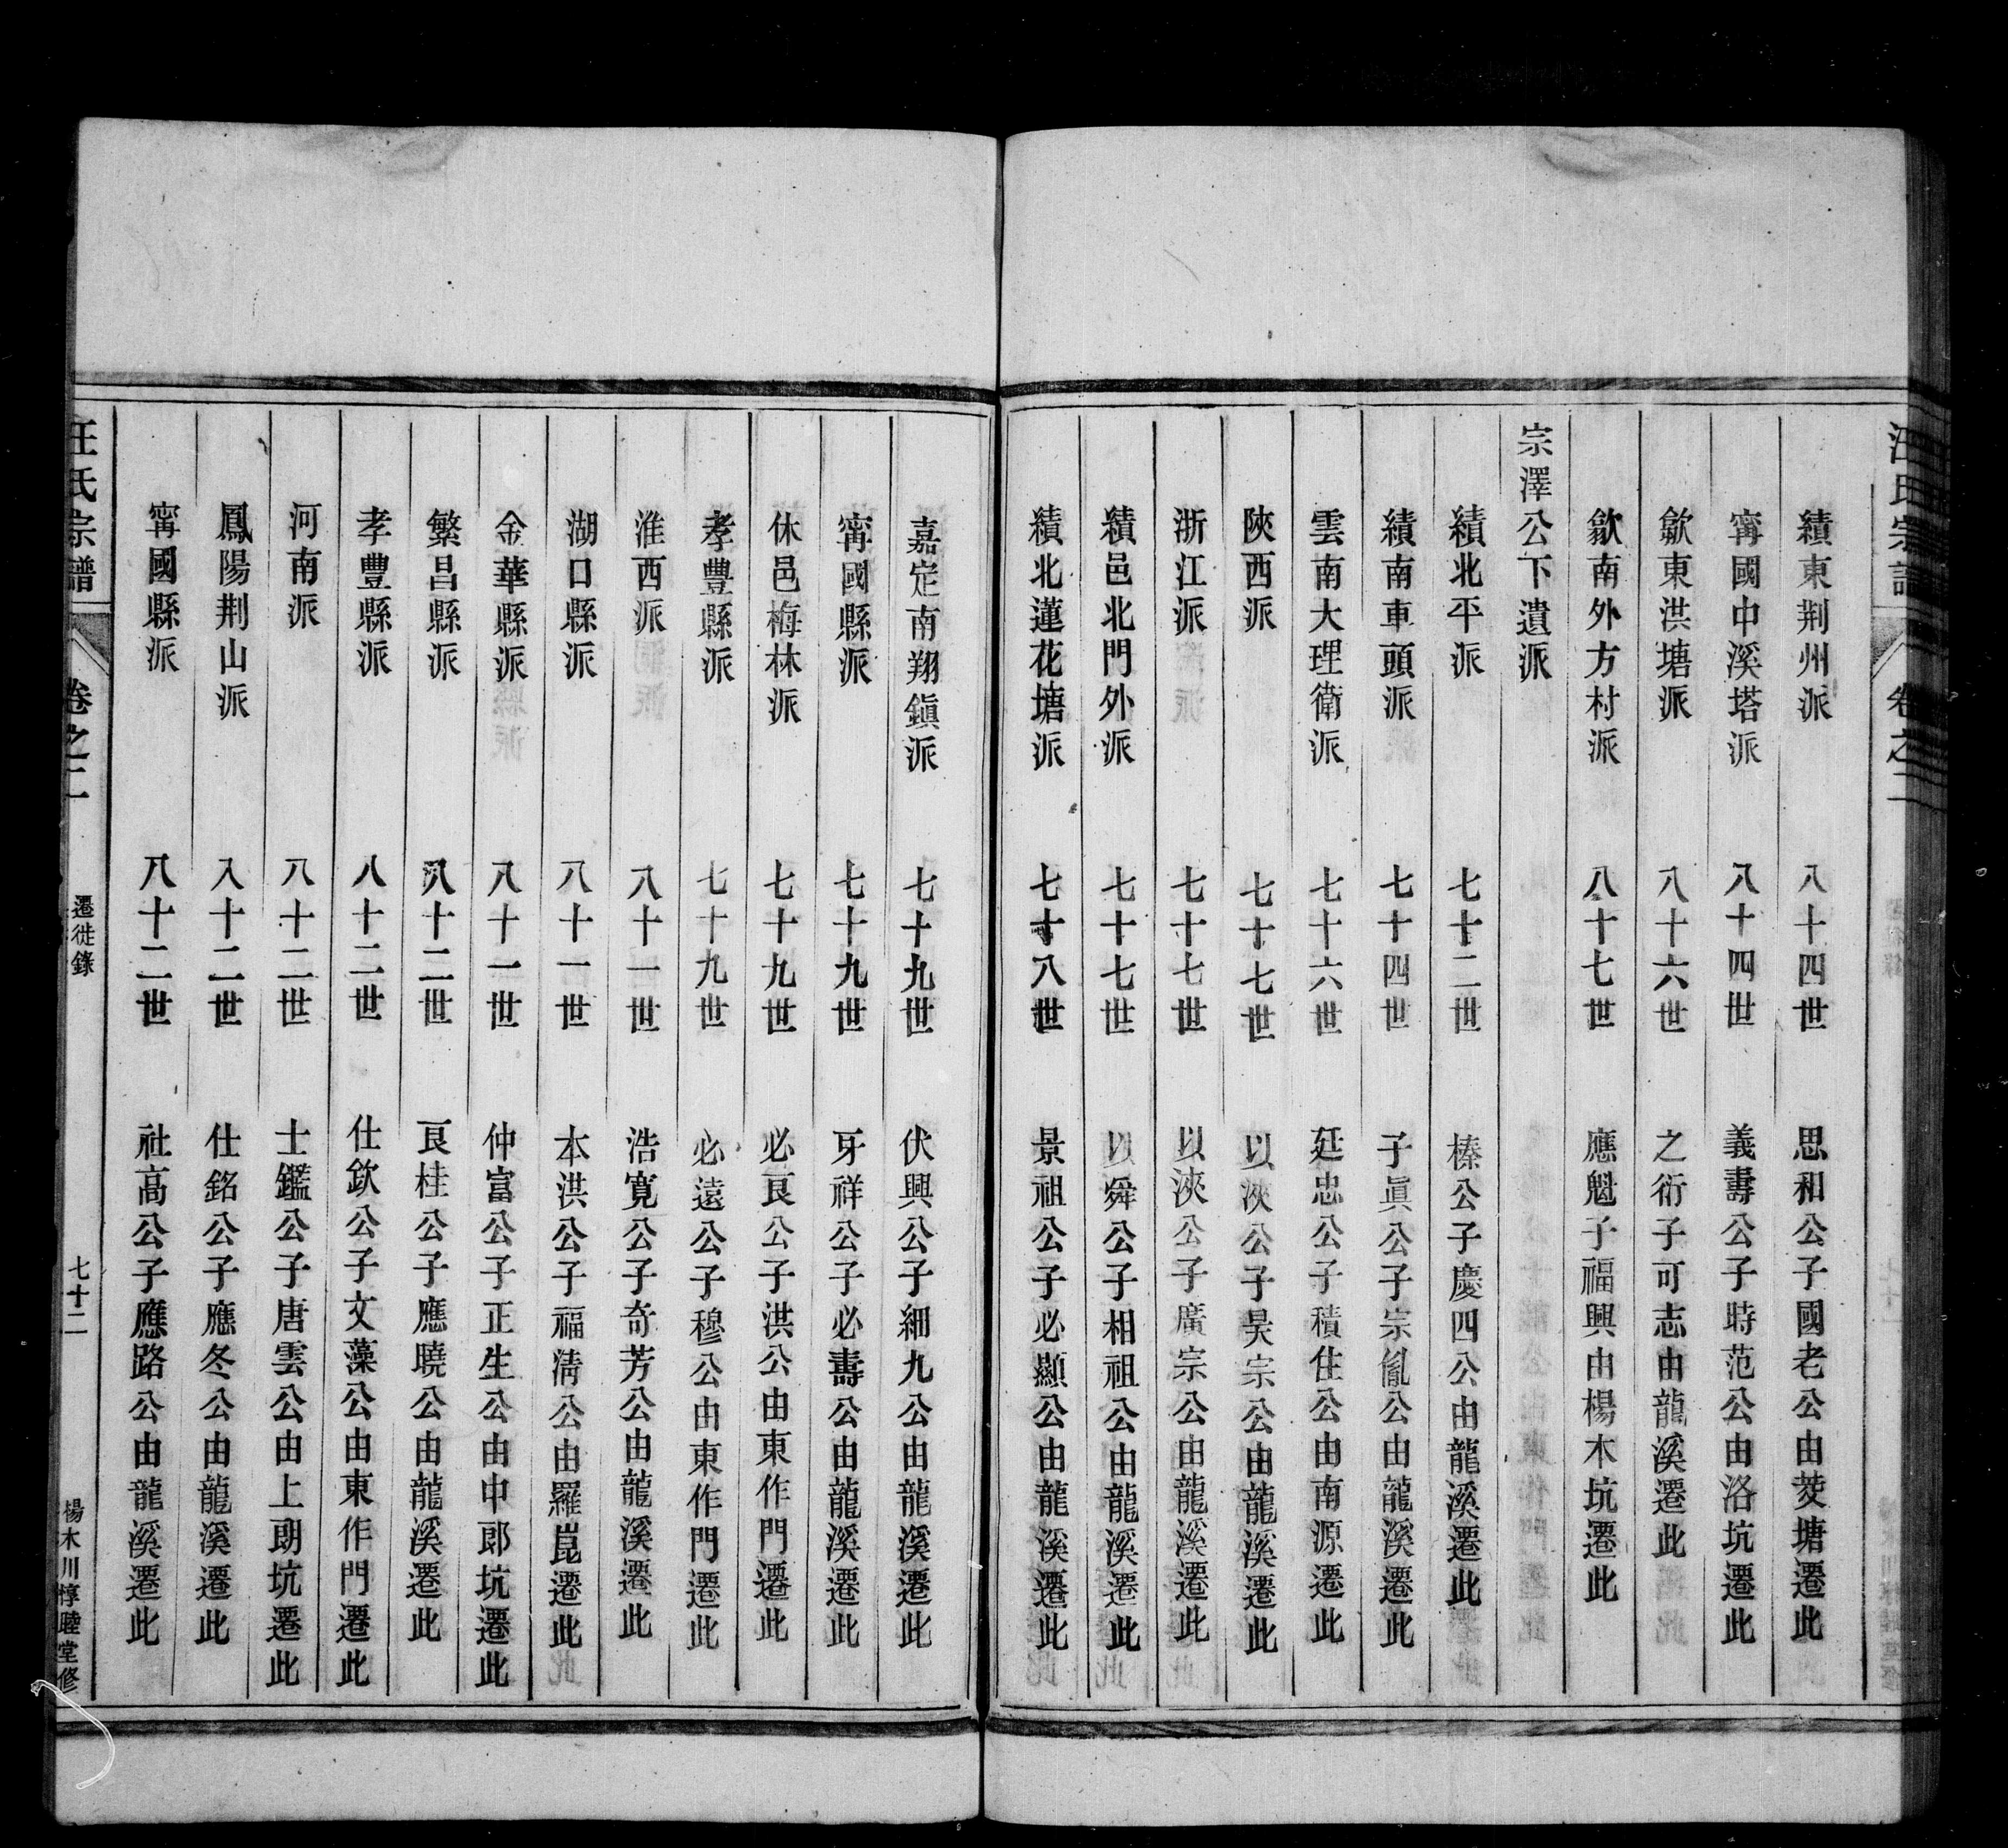 汪氏宗譜 卷之二
績東荆州派 八十四世 思和公子國老公由茭塘遷此
甯國中溪塔派 八十四世 義壽公子時范公由洛坑遷此
歙東洪塘派 八十六世 之衍子可志由龍溪遷此
歙南外方村派 八十七世 應魁子福興由楊木坑遷此
宗澤公下遺派
績北平派 七十二世 榛公子慶四公由龍溪遷此
績南車頭派 七十四世 子眞公子宗胤公由龍溪遷此
雲南大理衛派 七十六世 延忠公子積住公由南源遷此
陝西派 七十七世 以浹公子昊宗公由龍溪遷此
浙江派 七十七世 以浹公子廣宗公由龍溪遷此
績邑北門外派 七十七世 以舜公子相祖公由龍溪遷此
績北蓮花塘派 七十八世 景祖公子必顯公由龍溪遷此
嘉定南翔鎭派 七十九世 伏興公子細九公由龍溪遷此
甯國縣派 七十九世 牙祥公子必壽公由龍溪遷此
休邑梅林派 七十九世 必良公子洪公由東作門遷此
孝豐縣派 七十九世 必遠公子穆公由東作門遷此
淮西派 八十一世 浩寬公子奇芳公由龍溪遷此
湖口縣派 八十一世 本洪公子福淸公由羅崑遷此
金華縣派 八十一世 仲富公子正生公由中郎坑遷此
繁昌縣派 八十二世 良桂公子應曉公由龍溪遷此
孝豐縣派 八十二世 仕欽公子文藻公由東作門遷此
河南派 八十二世 士鑑公子唐雲公由上朗坑遷此
鳳陽荆山派 八十二世 仕銘公子應冬公由龍溪遷此
甯國縣派 八十二世 社高公子應路公由龍溪遷此
汪氏宗譜 卷之二 遷徙錄 七十二 楊木川惇睦堂修